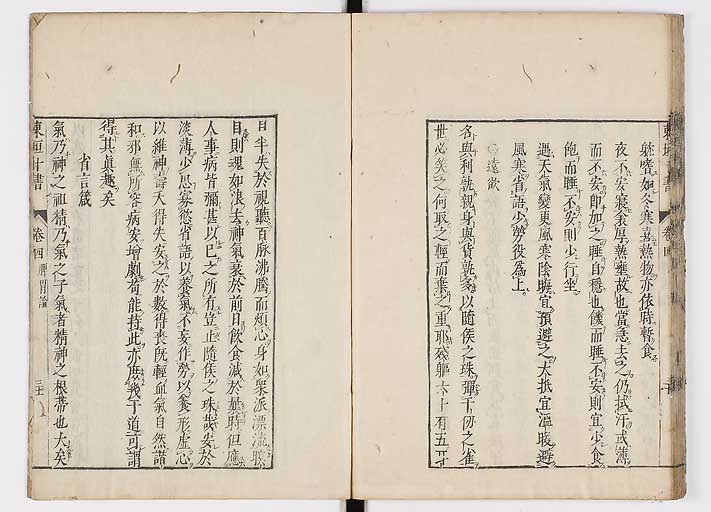 東垣十書
卷四
躭嗜如冬寒喜熱物亦依時暫食
夜不安寢衾厚熱壅故也當急去之仍拭汗或薄
而不安即加之睡自穩也饑而睡不安則宜少食
飽而睡不安則少行坐
遇天氣變更風寒陰晦宜預避之大抵宜溫暖避
風寒省語少勞役爲上
○遠欲
名與利孰親身與貨孰多以隨侯之珠彈千仞之雀
世必笑之何取之輕而棄之重耶殘軀六十有五耳
目半失於視聽百脉沸騰而煩心身如衆派漂流瞑
目則魂如浪去神氣衰於前日飲食減於曩時但應
人事病皆彌甚以已之所有豈止隨侯之珠哉安於
淡薄少思寡慾省語以養氣不妄作勞以養形虛心
以維神壽夭得失安之於數得喪既輕血氣自然諧
和邪無所容病安增劇苟能持此亦庶幾于道可謂
得其眞趣矣
省言箴
氣乃神之祖精乃氣之子氣者精神之根蔕也大矣
東垣十書
卷四
脾胃論